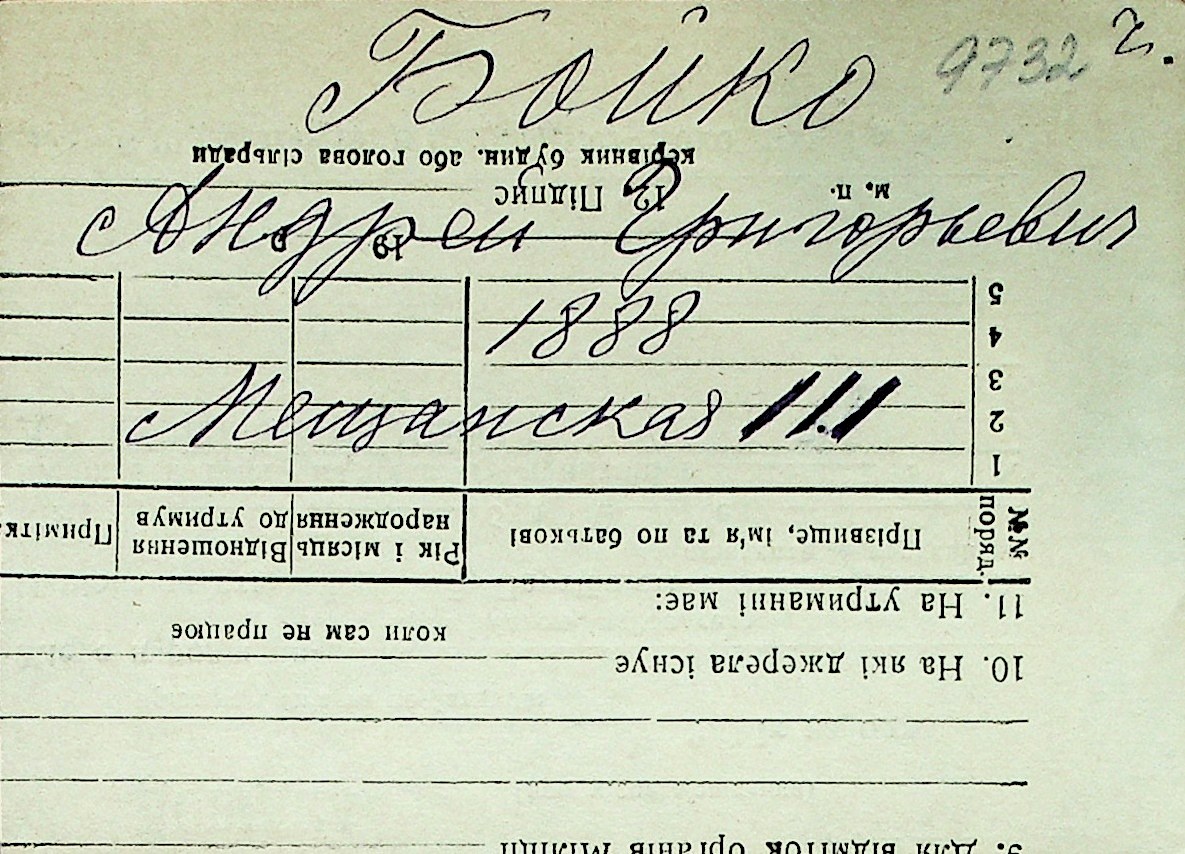 Бойко
9732 г.
Андрей Григорьевич
1888
Мещанская 111
9. Для відміток органів міліції
10. На які джерела існує
коли сам не працює
11. На утриманні має:
№№ поряд. Прізвище, ім'я та по батькові Рік і місяць народження Відношення до утримув Примітка
1
2
3
4
5
19 р
м. п. 12 Підпис
керівник будин. або голова сільради